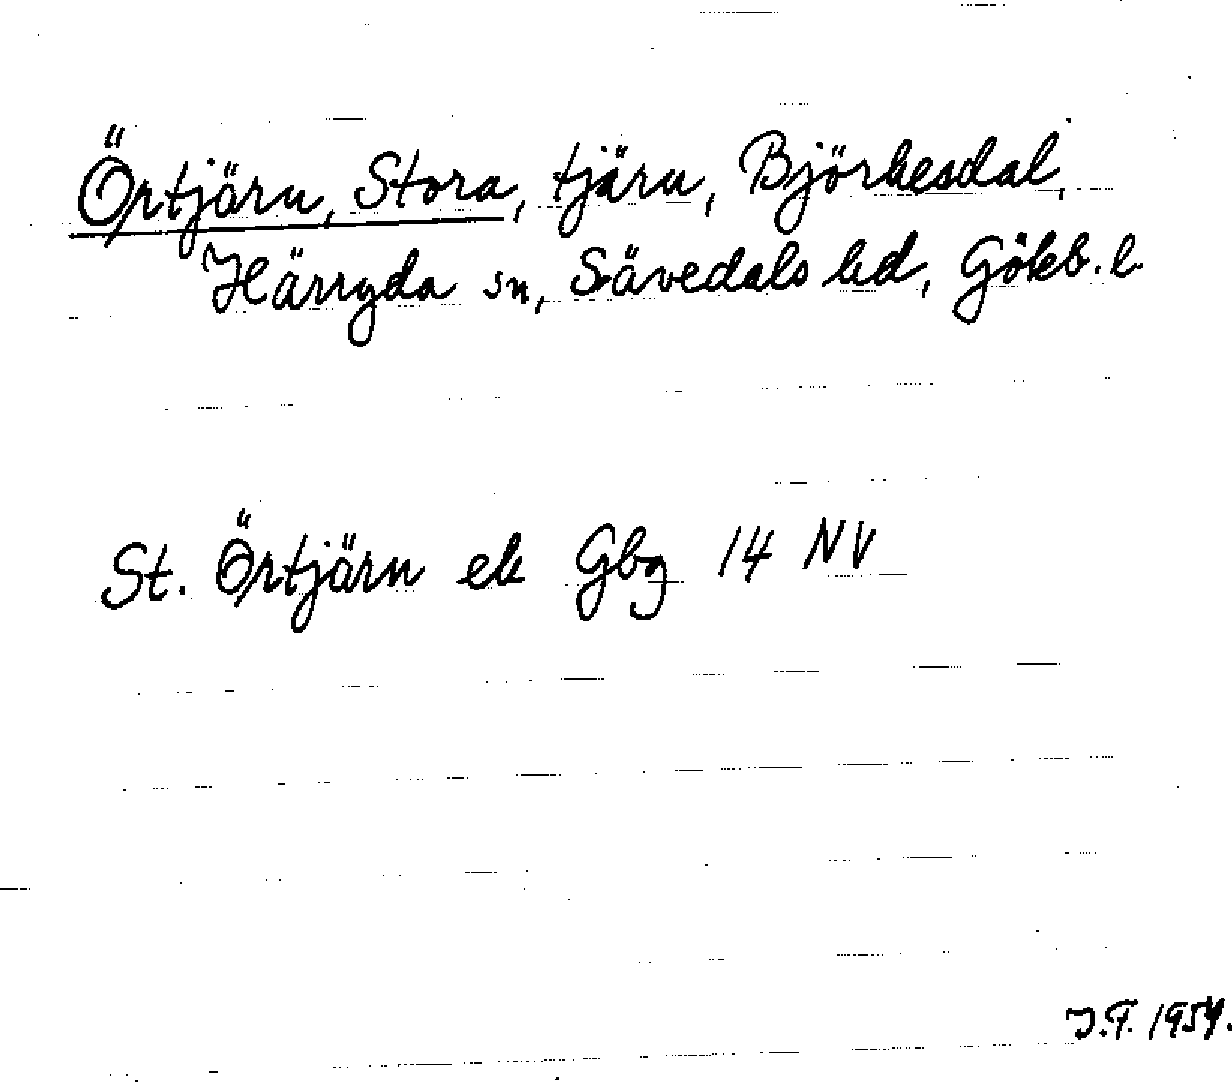 Örtjärn, Stora, tjärn, Björkesdal,
Härryda sn, Sävedals hd, Gökb. l.
St. Örtjärn ek Gbg 14 NV
J.F. 1954.